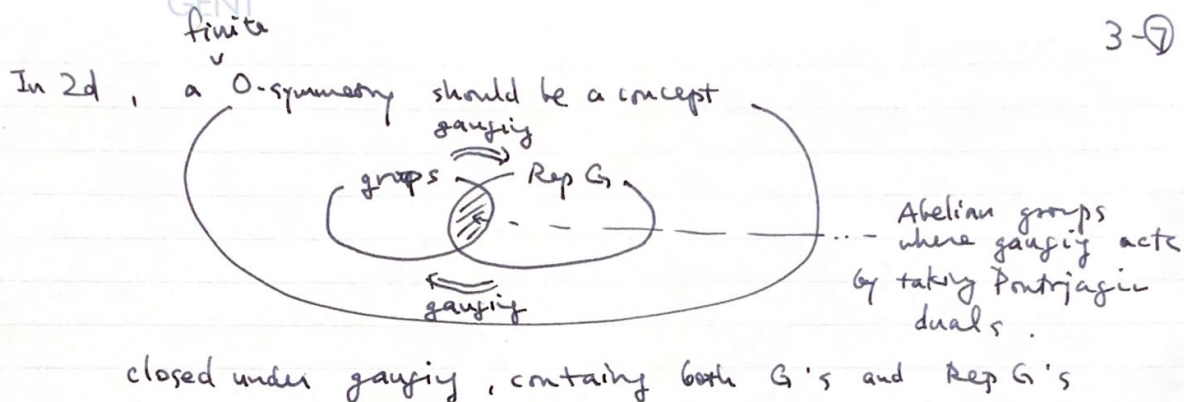 GENT
finite
3-⑦
In 2d, a 0-symmetry should be a concept
gauging
groups Rep G
Abelian groups
where gauging acts
by taking Pontrjagin
duals.
gauging
closed under gauging, containg both G's and Rep G's